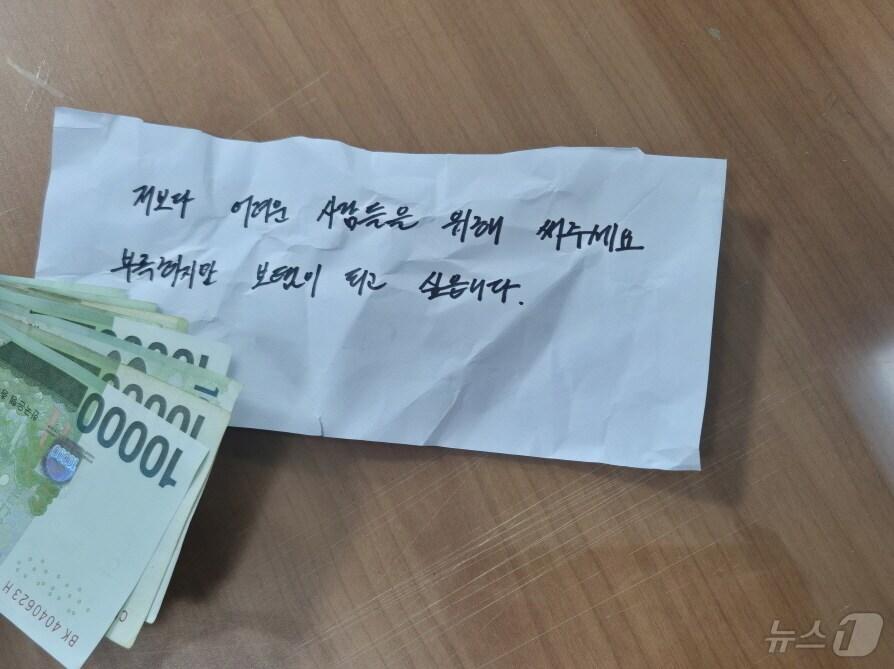 저보다 어려운 사람들을 위해 써주세요
부족하지만 보탬이 되고 싶습니다.
10000
10000
10000
BK 4040623 H
뉴스1